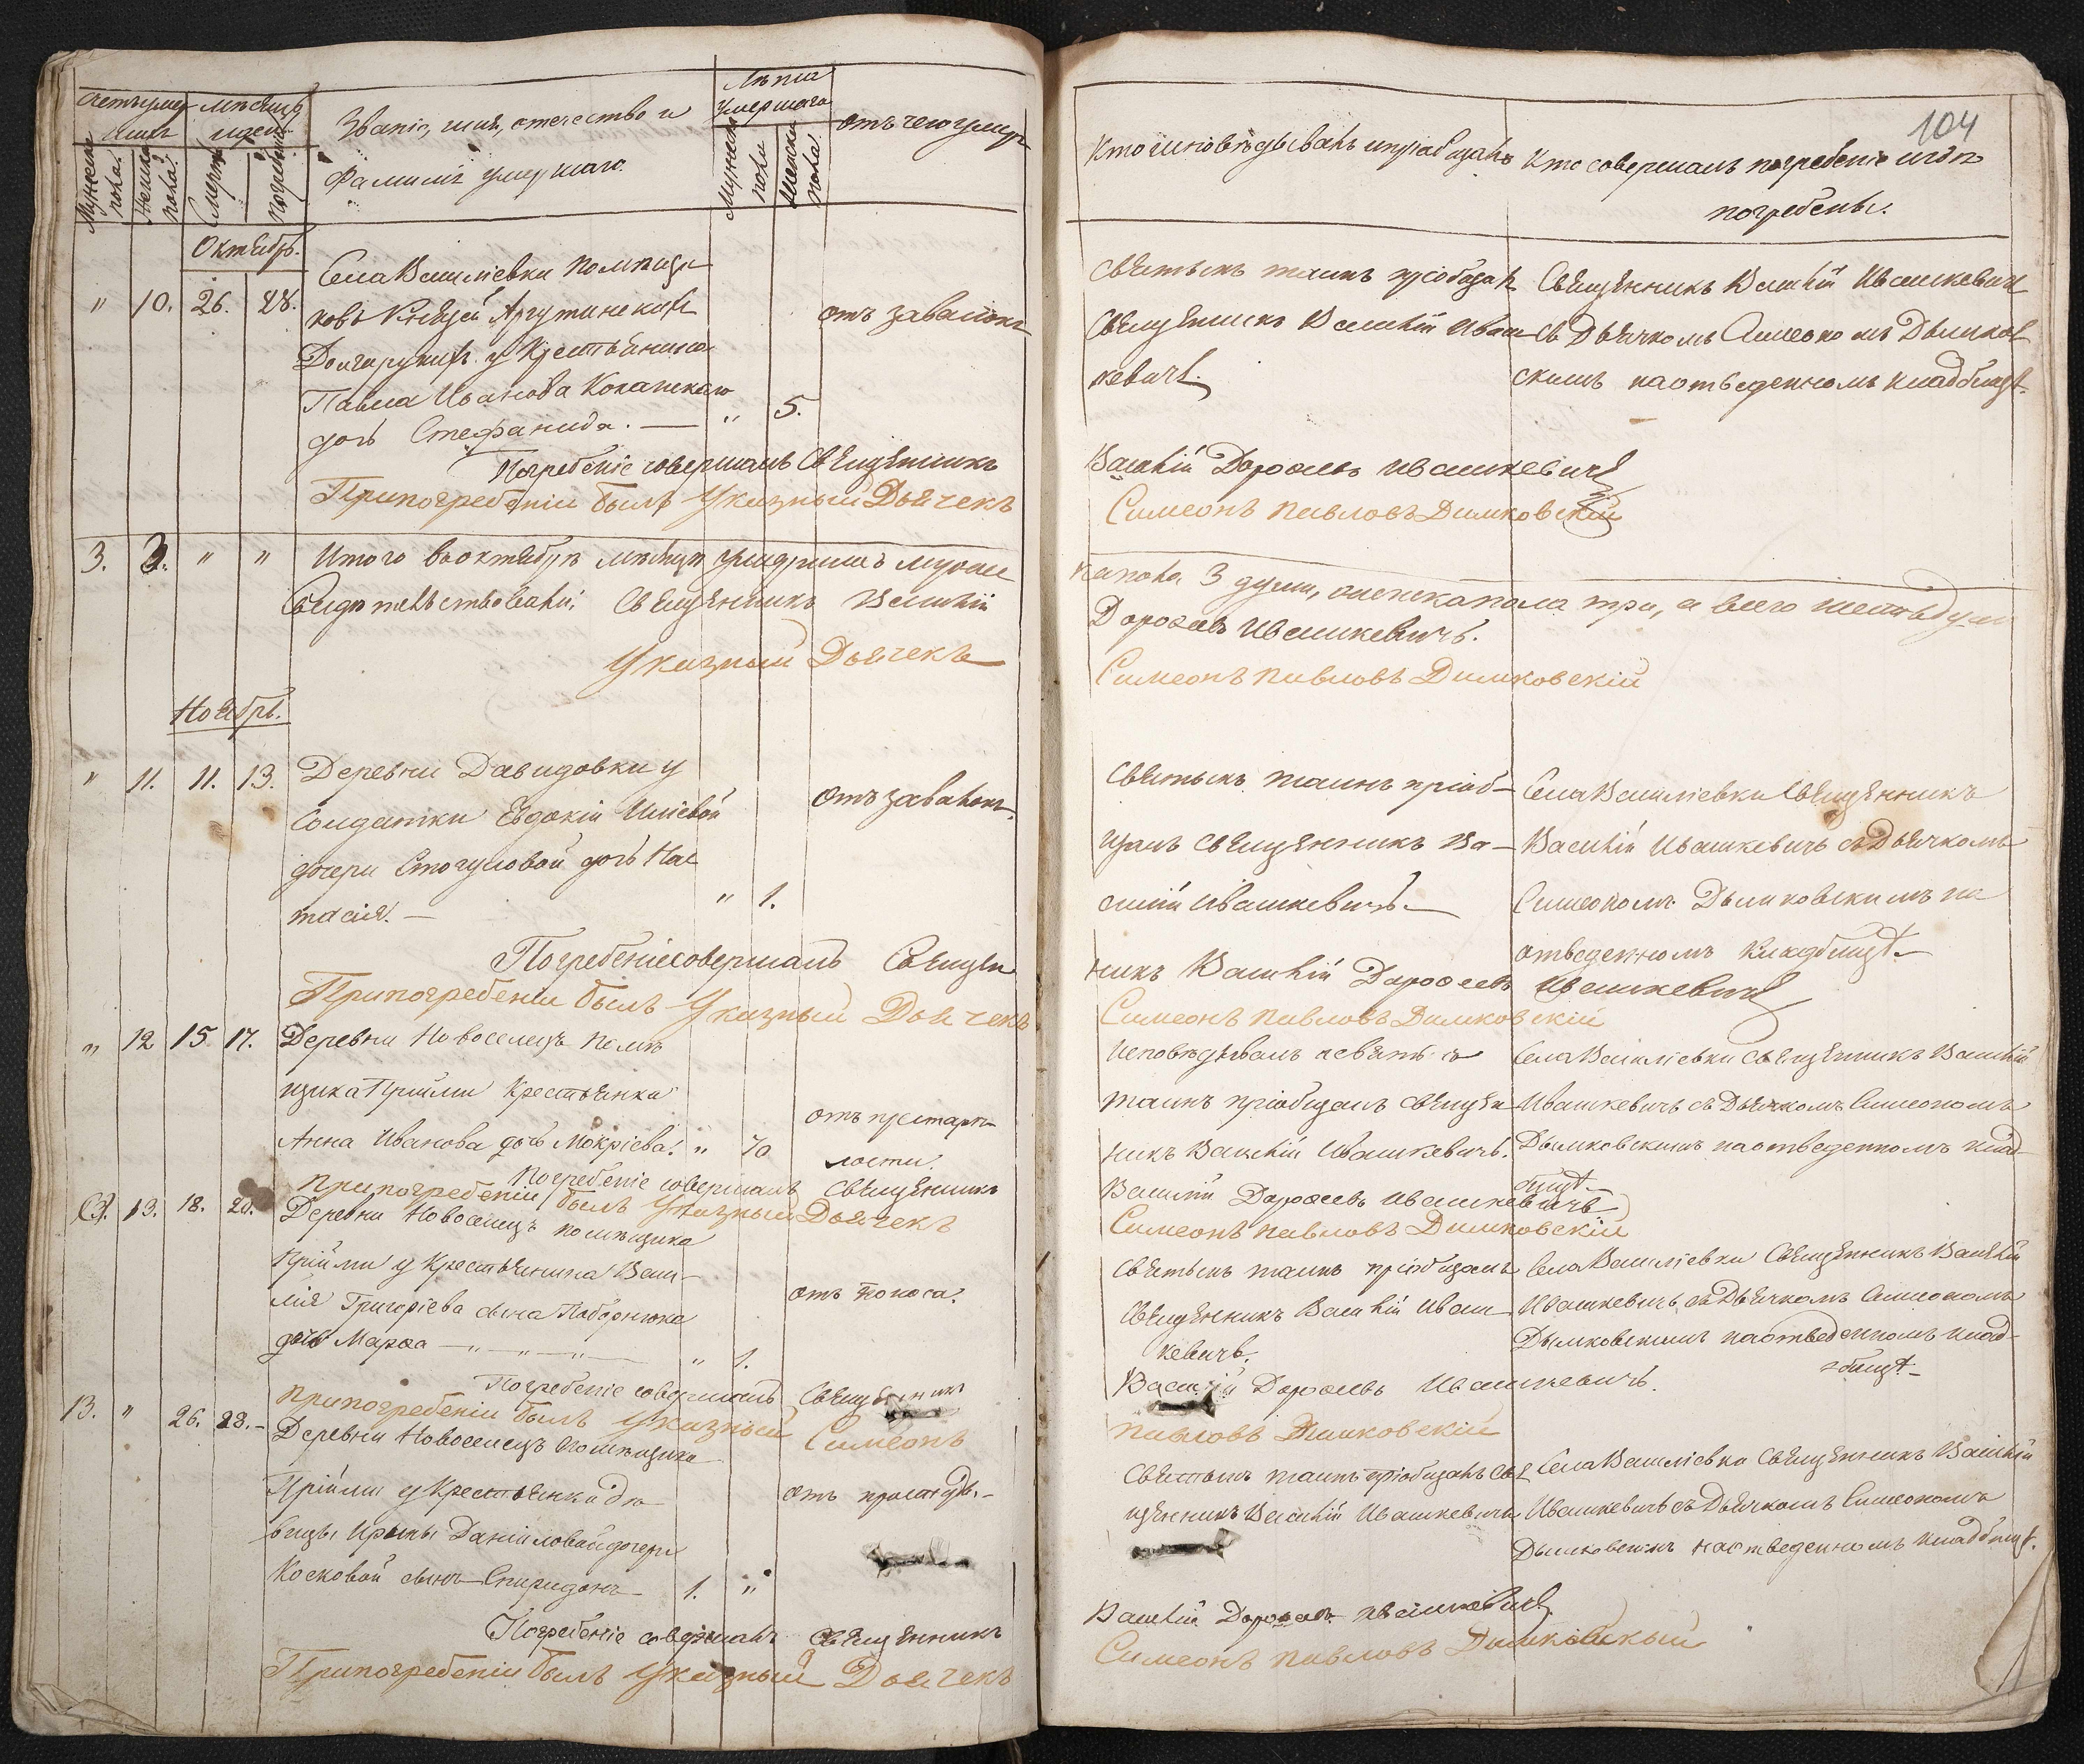 104
Счетъ умер
шихъ
Мѣсяцъ
и день
Званіе, имя, отечество и
фамилія умершаго.
Лѣта
умершаго
отъ чего умеръ
Мужеска
пола.
Женска
пола.
Смерти
погребенія
Мужеска
пола
Женска
пола.
Кто исповѣдывалъ и пріобщалъ
Кто совершалъ погребеніе и гдѣ
погребены.
Октябрь.
" 10. 26. 28.
Села Василіевки помѣщи
ковъ Князей Аргутинскихъ
Долгорукихъ у Крестьянина
Павла Иванова
дочь Стефанида. — " 5.
отъ завалокъ
Святыхъ таинъ пріобщалъ
Священникъ Василій Иваш
кевичъ.
Священникъ Василій Ивашкевичъ
съ Дьячкомъ Симеономъ Дымков
скимъ на отведенномъ кладбищѣ.
Погребеніе совершалъ Священникъ
Василій Дорофеевъ Ивашкевичъ
При погребеніи былъ Указный Дьячекъ
Симеонъ Павловъ Димковскій
3. 3. " " Итого въ октябрѣ мѣсяцѣ умершихъ мужес
ка пола 3 души, женска пола три, а всего шесть душъ
Свидѣтельствовали: Священникъ Василій
Дорофеевъ Ивашкевичъ.
Указный Дьячекъ
Симеонъ Павловъ Димковскій
Ноябрь.
" 11. 11. 13.
Деревни Давидовки у
Солдатки Евдокіи Иліевой
дочери дочь Нас
тасія. — " 1.
отъ завалокъ.
Святыхъ таинъ пріоб-
щалъ Священникъ Ва-
силій Ивашкевичъ. —
Села Василіевки Священникъ
Василій Ивашкевичъ съ Дьячкомъ
Симеономъ Дымковскимъ на
отведенномъ кладбищѣ.
Погребеніе совершалъ Священ
никъ Василій Дорофеевъ Ивашкевичъ
При погребеніи былъ Указный Дьячекъ
Симеонъ Павловъ Димковскій
" 12 15 17.
Деревни Новоселецъ помѣ
щика Пріймы Крестьянка
Анна Иванова дочь Мокріева. " 70
отъ престарѣ
лости.
Исповѣдывалъ и святыхъ
таинъ пріобщалъ Священ
никъ Василій Ивашкевичъ.
Села Василіевки Священникъ Василій
Ивашкевичъ съ Дьячкомъ Симеономъ
Дымковскимъ на отведенномъ клад-
бищѣ.
Погребеніе совершалъ Священникъ
Василій Дорофеевъ Ивашкевичъ
При погребеніи былъ Указный Дьячекъ
Симеонъ Павловъ Димковскій
13. 18. 20.
Деревни Новоселецъ помѣщика
Пріймы у Крестьянина Васи-
лія Григоріева сына
дочь Марфа — " — " — " — " 1.
отъ поноса.
Святыхъ таинъ пріобщалъ
Священникъ Василій Иваш
кевичъ.
Села Василіевки Священникъ Василій
Ивашкевичъ съ Дьячкомъ Симеономъ
Дымковскимъ на отведенномъ клад-
бищѣ.
Погребеніе совершалъ Священникъ
Василій Дорофеевъ Ивашкевичъ.
При погребеніи былъ Указный Симеонъ
Павловъ Димковскій
13. " 26. 28. -
Деревни Новоселецъ помѣщика
Пріймы у Крестьянки дѣ
вицы Ирины Даніиловой дочери
Косковой сынъ Спиридонъ — 1. "
отъ простуды. -
Святыхъ таинъ пріобщалъ Свя
щенникъ Василій Ивашкевичъ
Села Василіевки Священникъ Василій
Ивашкевичъ съ Дьячкомъ Симеономъ
Дымковскимъ на отведенномъ кладбищѣ.
Погребеніе совершалъ Священникъ
Василій Дорофеевъ Ивашкевичъ
При погребеніи былъ Указный Дьячекъ
Симеонъ Павловъ Димковскый